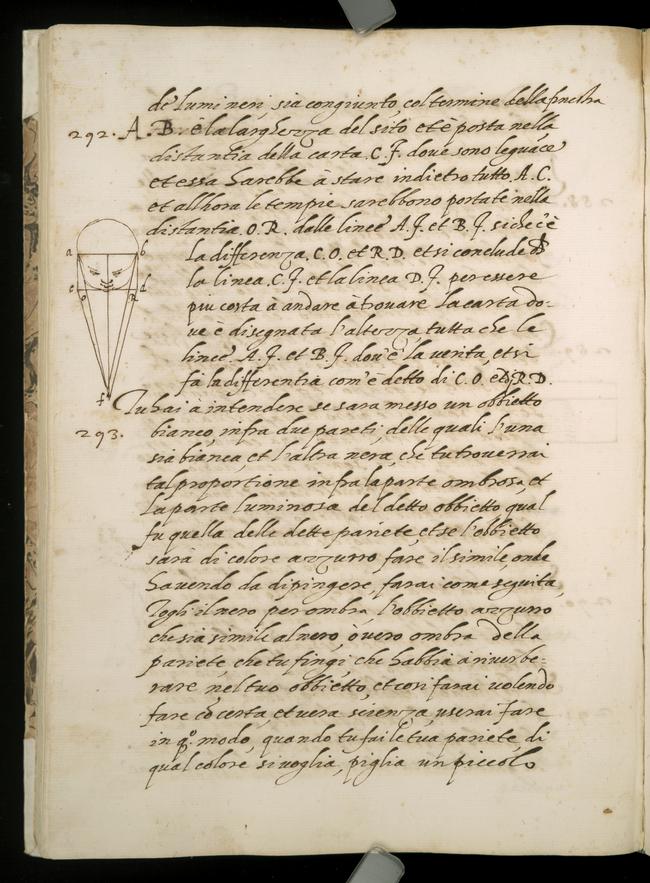 de lumi neri, sia congiunto, col termine della finestra
292. A. B. è la larghezza del sito et è posta nella
distantia della carta. C. f. dove sono le guace
et essa harebbe à stare indietro tutto. A. C.
et allhora le tempie sarebbono portate nella
distantia. O. R. dalle linee A. f. et B. f. si che c'è
la differenza. C. O. et R. D. et si conclude ch
la linea. C. f. et la linea D. f. per essere
piu costa à andare à trouare la carta do-
ve è disegnata l'altezza tutta che le
linee. A. f. et B. f. dov'è la verita, et si
fà la differentia com'è detto di C. O. et di R. D.
a b
c o r d
f
Tu hai à intendere se sara messo un obbietto
293. bianco, infra due pareti, delle quali l'una
sia bianca, et l'altra nera, che tu trouerrai
tal proportione infra la parte ombrosa, et
la parte luminosa del detto obbietto, qual
fu quella delle dette pariete, et se l'obbietto
sarà di colore azzurro fare il simile, onde
havendo da dipingere, farai come seguita,
Togli il nero per ombra, l'obbietto azzurro
che sia simile al nero, ò vero ombra della
pariete, che tu fingi, che habbia à riuerbe-
rare, nel tuo obbietto, et cosi farai uolendo
fare cō certa, et uera scienza, userai fare
in q.o modo, quando tu fai le tua pariete, di
qual colore si voglia, piglia un piccolo